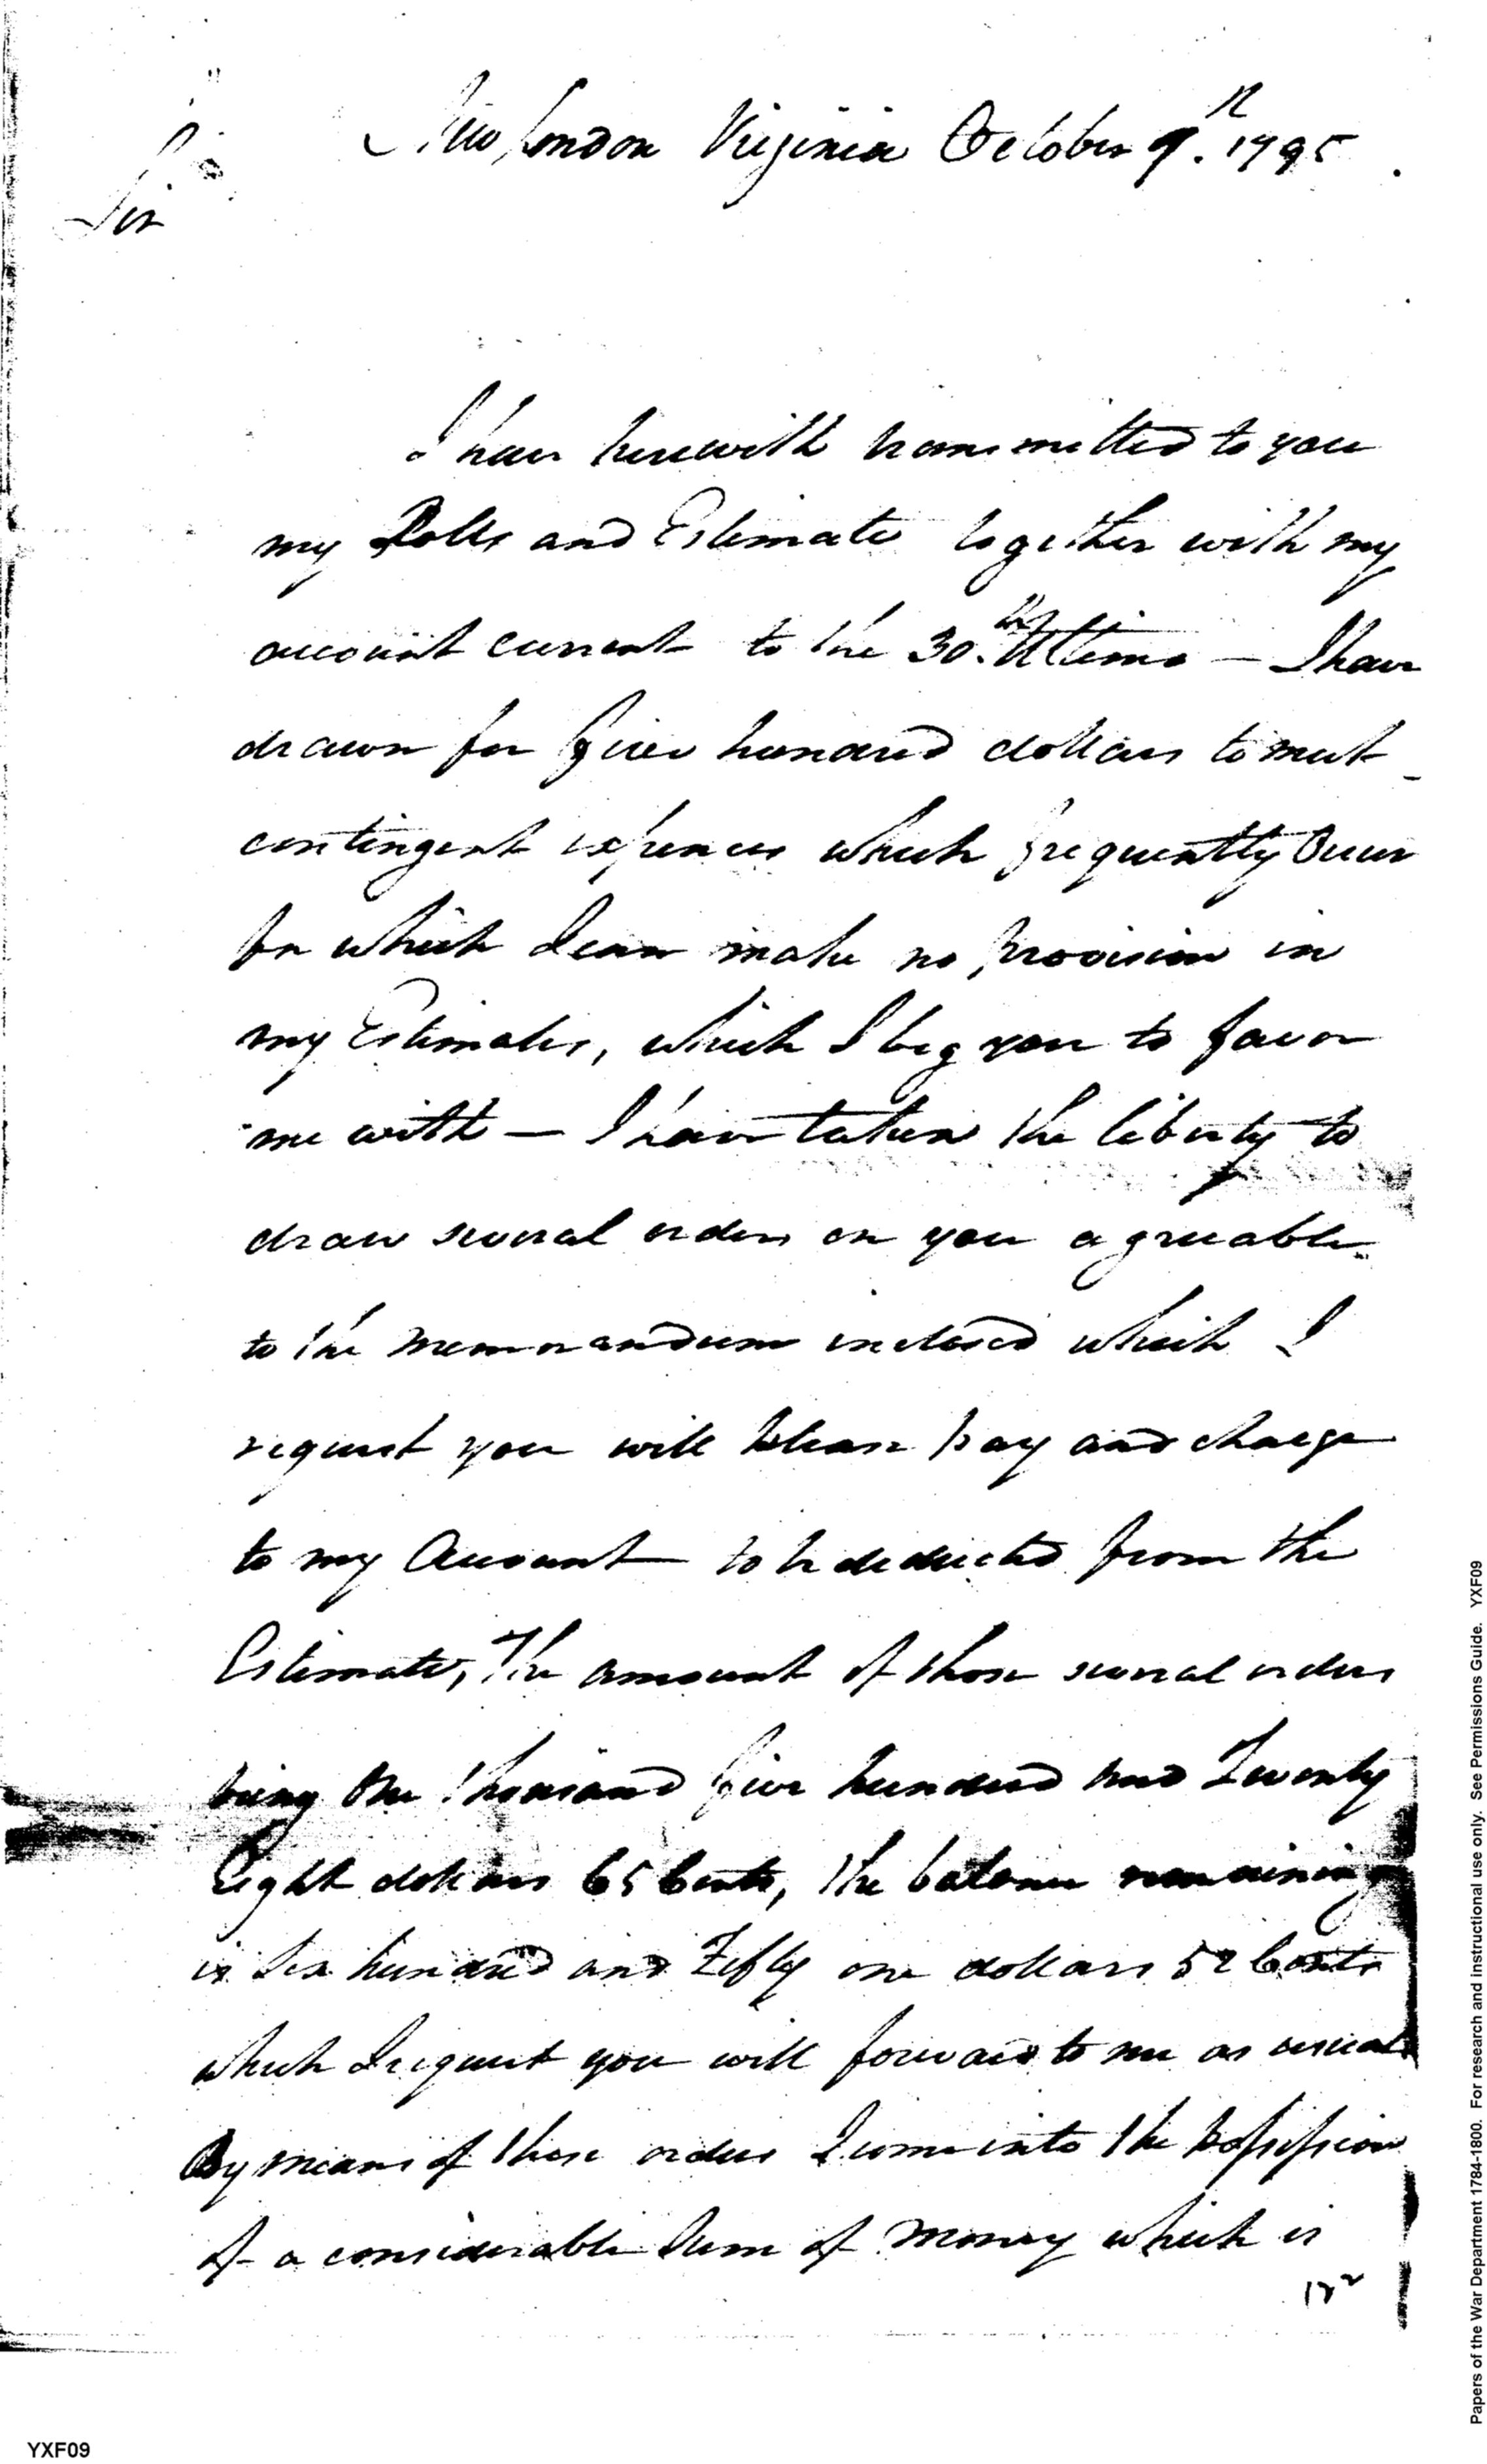 New London Virginia October 9th. 1795
Sir
I have herewith transmitted to you
my Rolls and Estimate together with my
account current to the 30.th Ultimo — I have
drawn for five hundred dollars to meet
contingent expences which frequently Occur
for which I can make no provision in
my Estimates, which I beg you to favor
me with — I have taken the liberty to
draw several orders on you agreeable
to the Memorandum inclosed which I
request you will please pay and charge
to my Account to be deducted from the
Estimate, The amount of those several orders
being One thousand five hundred and Twenty
Eight dollars 65 Cents, the balance remaining
is Six hundred and Fifty one dollars 52 Cents
which I request you will forward to me as usual
By means of these orders I come into the possession
of a considerable Sum of Money which is
Papers of the War Department 1784-1800. For research and instructional use only. See Permissions Guide. YXF09
YXF09